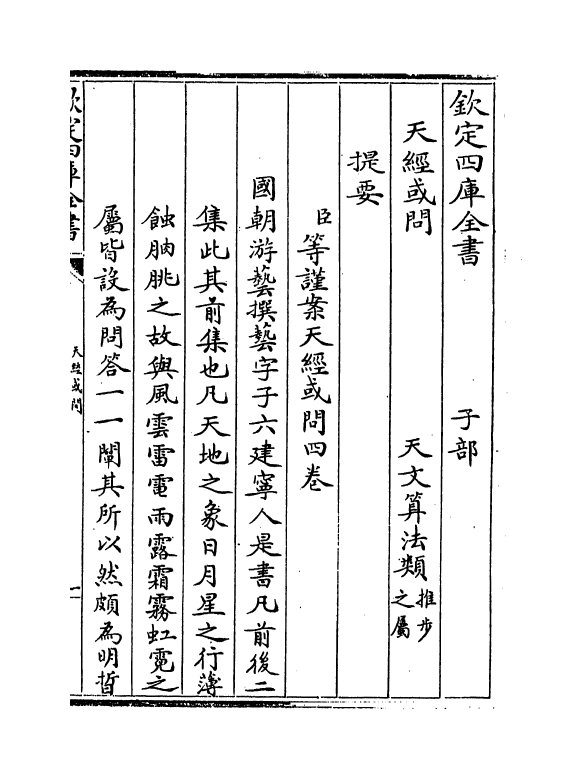 欽定四庫全書　　　子部
天經或問　　　天文算法類推步之屬
提要
臣等謹案天經或問四卷
國朝游藝撰藝字子六建寧人是書凡前後二
集此其前集也凡天地之象日月星之行薄
蝕朒朓之故與風雲雷電雨露霜霧虹霓之
屬皆設為問答一一闡其所以然頗為明晳
欽定四庫全書
天經或問
一